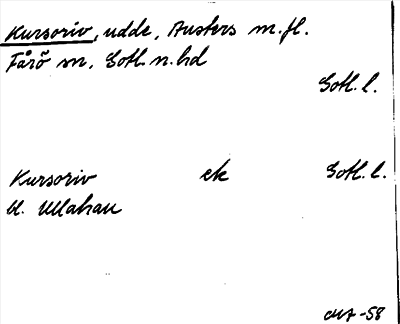 Kursoriv, udde, Austers m.fl.
Fårö sn, Gotl. n. hd
Gotl. l.
Kursoriv ek Gotl. l.
bl. Ullahau
-58